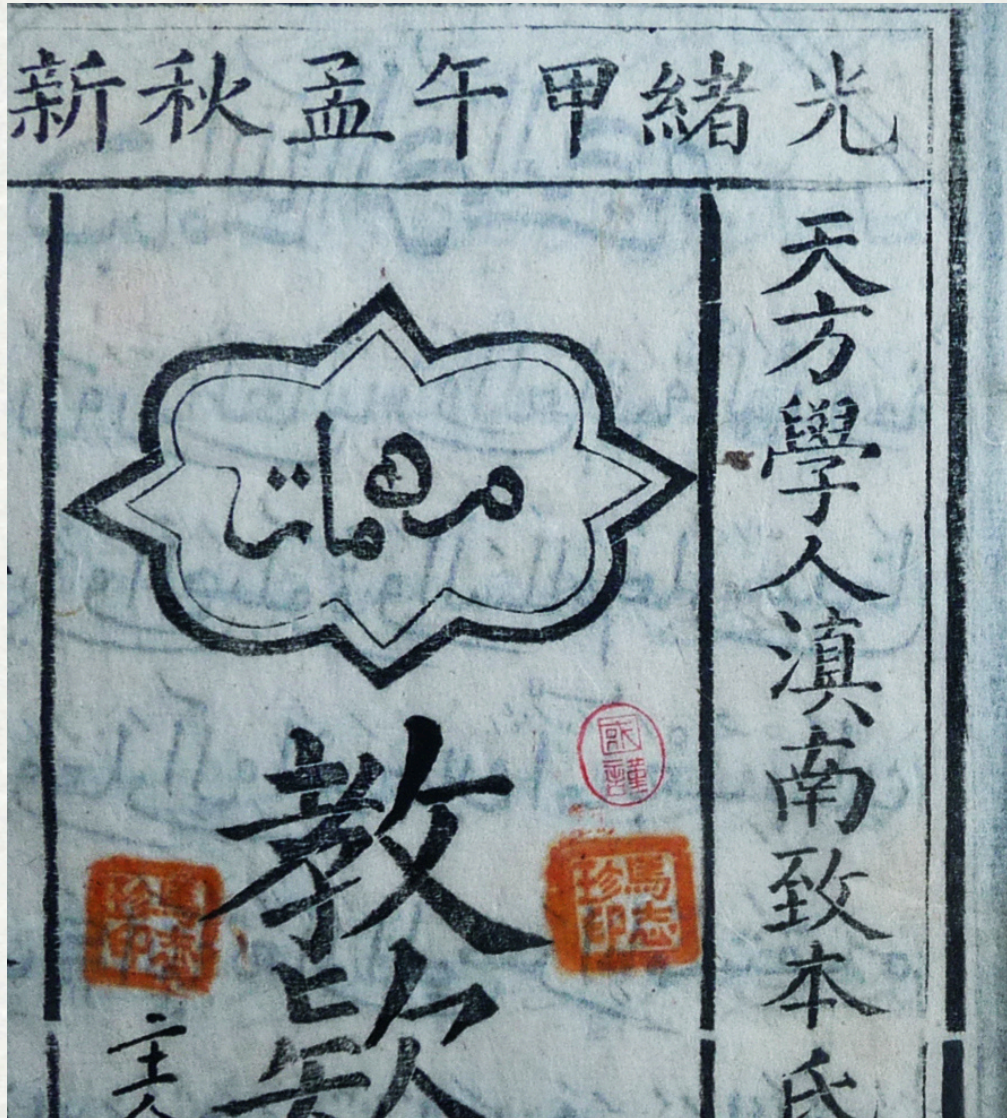 光緒甲午孟秋新
天方學人滇南致本氏
مهمات
教款
馬志珍印
馬志珍印
主